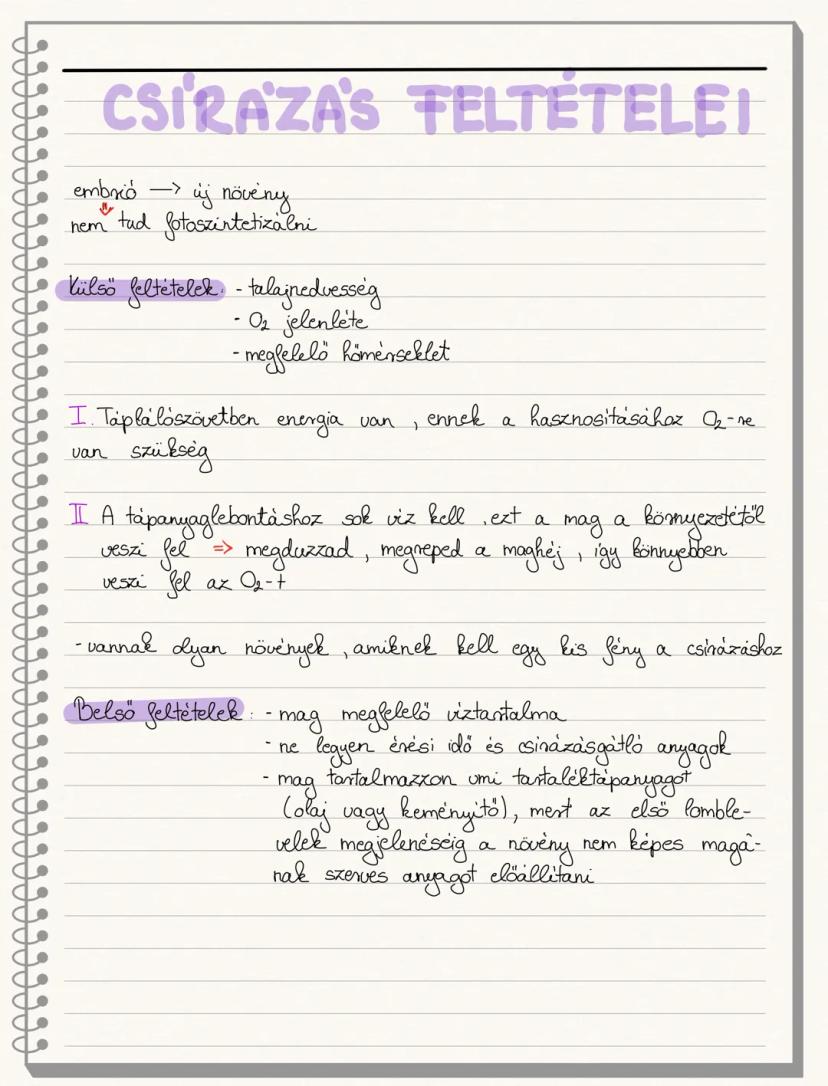 CSÍRÁZÁS FELTÉTELEI
embrió —> új növény
⇓
nem tud fotoszintetizálni
Külső feltételek: - talajnedvesség
- O₂ jelenléte
- megfelelő hőmérséklet
I. Táplálószövetben energia van, ennek a hasznosításához O₂-re
van szükség
II A tápanyaglebontáshoz sok víz kell, ezt a mag a környezetétől
veszi fel => megduzzad, megreped a maghéj, így könnyebben
veszi fel az O₂-t
- vannak olyan növények, amiknek kell egy kis fény a csírázáshoz
Belső feltételek: - mag megfelelő víztartalma
- ne legyen érési idő és csírázásgátló anyagok
- mag tartalmazzon vmi tartaléktápanyagot
(olaj vagy keményítő), mert az első lomble-
velek megjelenéséig a növény nem képes magá-
nak szerves anyagot előállítani